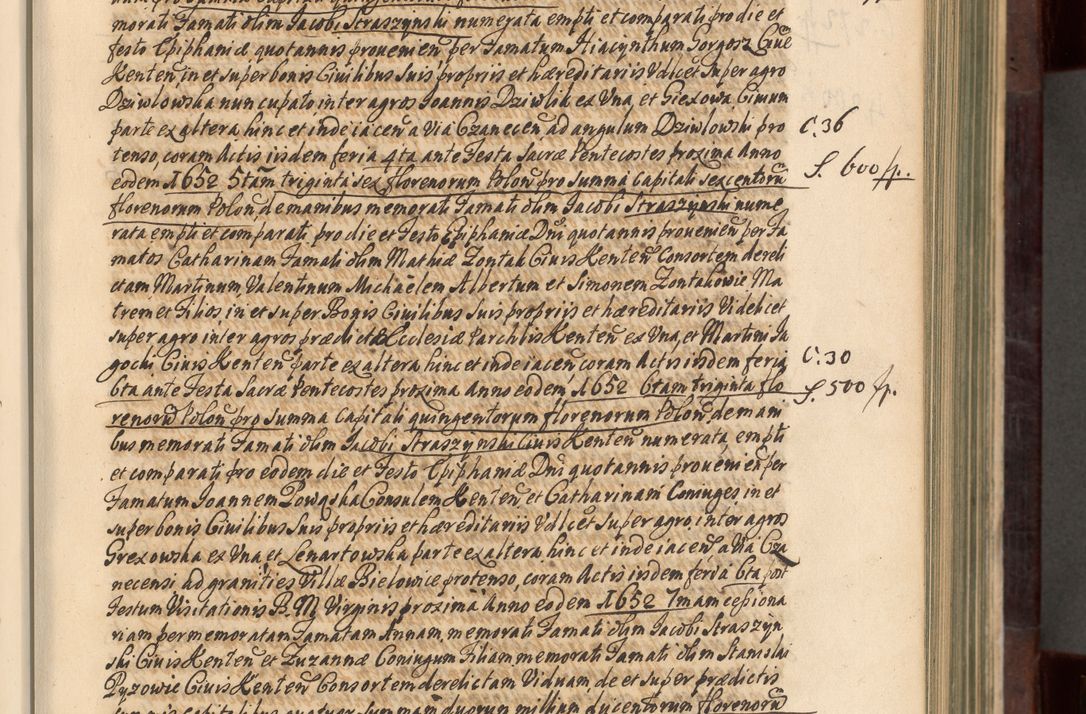 morati Famati olim Jacobi Straszynski numerata empti et comparati pro die et
festo Epiphaniæ quotannis prouenien̄ per Famatum Hiacynthum Gorgosz Ciuē
Kenten̄, in et super bonis Ciuilibus suis proprijs et hæreditarijs Vdlcet super agro
Dziwlowska nuncupato inter agros Joannis Dziwlik ex Vna, et Giezowa, Ciuium
parte ex altera hinc et inde iacen̄ a Via Czanecen̄ ad angulum Dziwlowski pro
tenso, coram Actis ijsdem feria 4ta ante Festa Sacræ Pentecostes proxima Anno
eodem 1652 5tam triginta sex florenorum Polon̄ pro summa Capitali sexcentorū
florenorum Polon̄ de manibus memorati Famati olim Jacobi Straszynski nume
rata empti et comparati pro die et Festo Epiphaniæ Dn̄i quotannis prouenien̄ per Fa
matos Catharinam Famati olim Mathiæ Zontak Ciuis Kenten̄ Consortem dereli
ctam Martinum, Valentinum Michaëlem Albertum et Simonem Zontakowie Ma
trem et Filios, in et super Bonis Ciuilibus suis proprijs et hæreditarijs Videlicet
super agro inter agros prædictæ Ecclesiæ Parchlis Kenten̄ ex Vna, et Martini Ja
gocki Ciuis Kenten̄ parte ex altera hinc et inde iacen̄ coram Actis ijsdem feria
6ta ante Festa Sacræ Pentecostes proxima Anno eodem 1652 6tam triginta flo
renorū Polon̄ pro summa Capitali quingentorum florenorum Polon̄, de mani
bus memorati Famati olim Jacobi Straszynski Ciuis Kenten̄ numerata, empti
et comparati pro eodem die et Festo Epiphaniæ Dn̄i quotannis prouenien̄ per
Famatum Joannem Powąska Consulem Kenten̄ et Catharinam Coniuges, in et
super bonis Ciuilibus suis proprijs et hæreditarijs Vdlcet super agro inter agros
Grezowska ex Vna, et Lenartowska parte ex altera hinc et inde iacen̄, a Via Cza
necensi ad granities Villæ Bielowice protenso, coram Actis ijsdem feria 6ta post
Festum Visitationis B. M Virginis proxima Anno eodem 1652 7mam cessiona
riam per memoratam Famatam Annam, memorati Famati olim Jacobi Straszyn
ski Ciuis Kenten̄ et Zuzannæ Coniugum Filiam memorati Famati olim Stanislai
Pyzowic Ciuis Kenten̄ Consortem derelictam Viduam, de et super prædictis
summis capitalibus quatuor summam duorum millium ducentorum florenorū
C. 36
S. 600 fp.
C. 30
S. 500 fp.